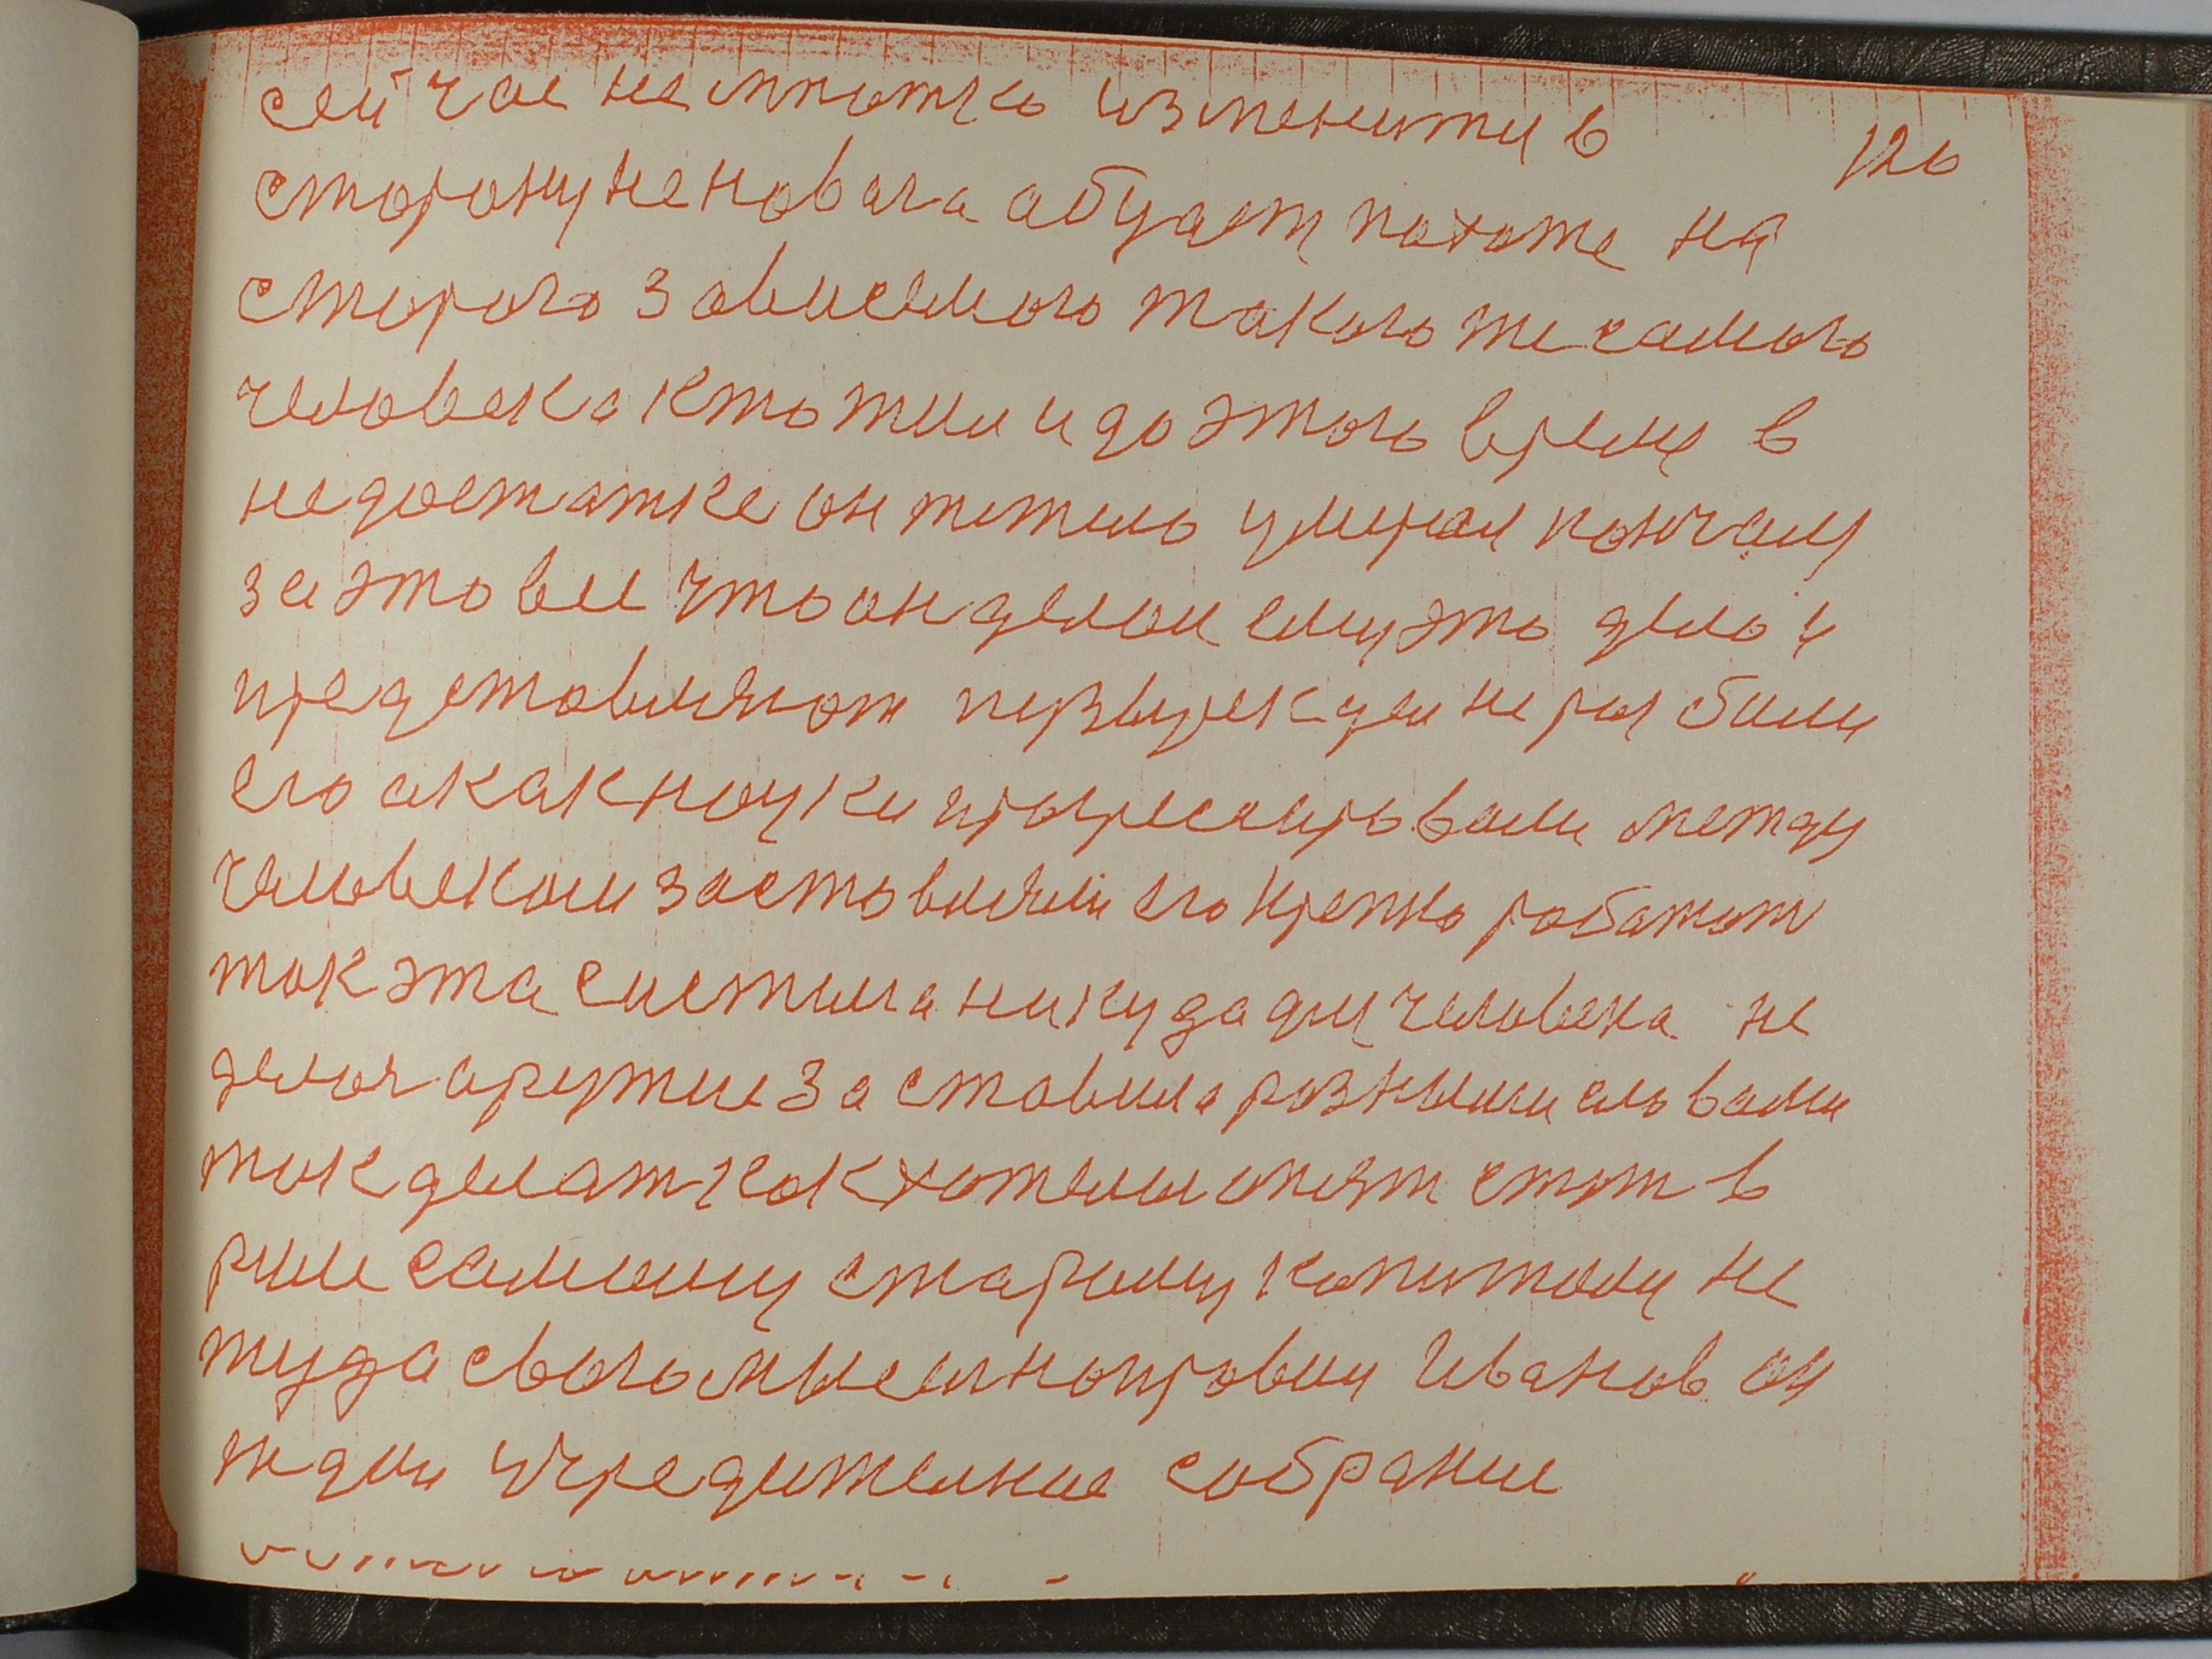 сейчас не мпотко изменити в
126
сторону не новага абуает похоже на
сторого зависемого такого же самого
человека кто жил и до этого времи в
недостатке он тежело умирал кончаму
за это вси что он делал ему это дело и
предстовляют первырек дли не рыбили
его а как науки прыресыровали между
человеком застовляли его крепко работат
так эта систима никуда дли человека не
делоч аружие заставила разными словами
так делат как хотели опят стат в
риме самыму старыму капиталу не
туда свого мысли нопровил Иванов он
ждли учредителние собрание